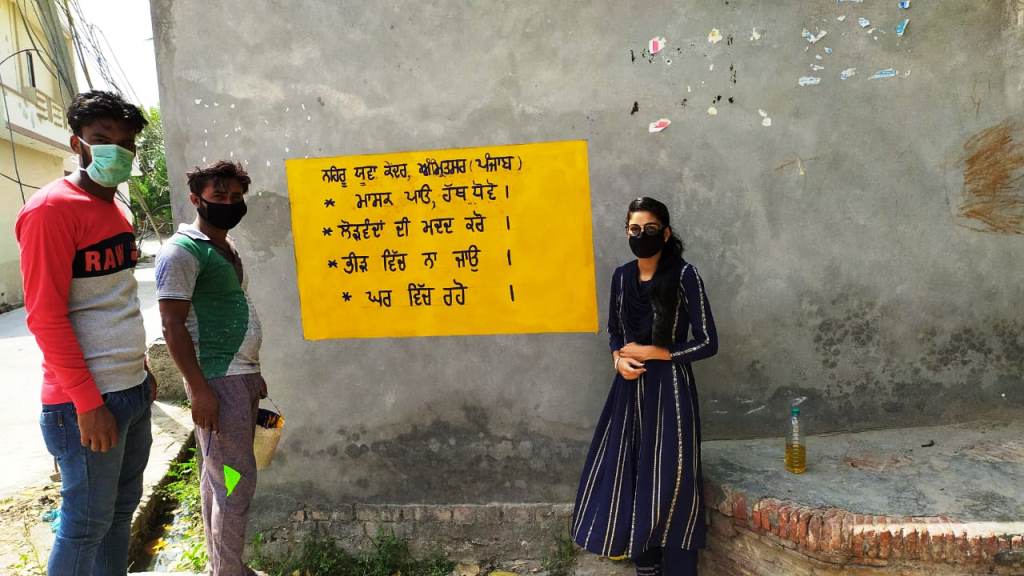 ਨਹਿਰੂ ਯੂਵਾ ਕੇਂਦਰ, ਅੰਮ੍ਰਿਤਸਰ (ਪੰਜਾਬ)
* ਮਾਸਕ ਪਾਓ, ਹੱਥ ਧੋਵੋ।
* ਲੋੜਵੰਦਾਂ ਦੀ ਮਦਦ ਕਰੋ ।
* ਭੀੜ ਵਿੱਚ ਨਾ ਜਾਓ ।
* ਘਰ ਵਿੱਚ ਰਹੋ ।
RAW